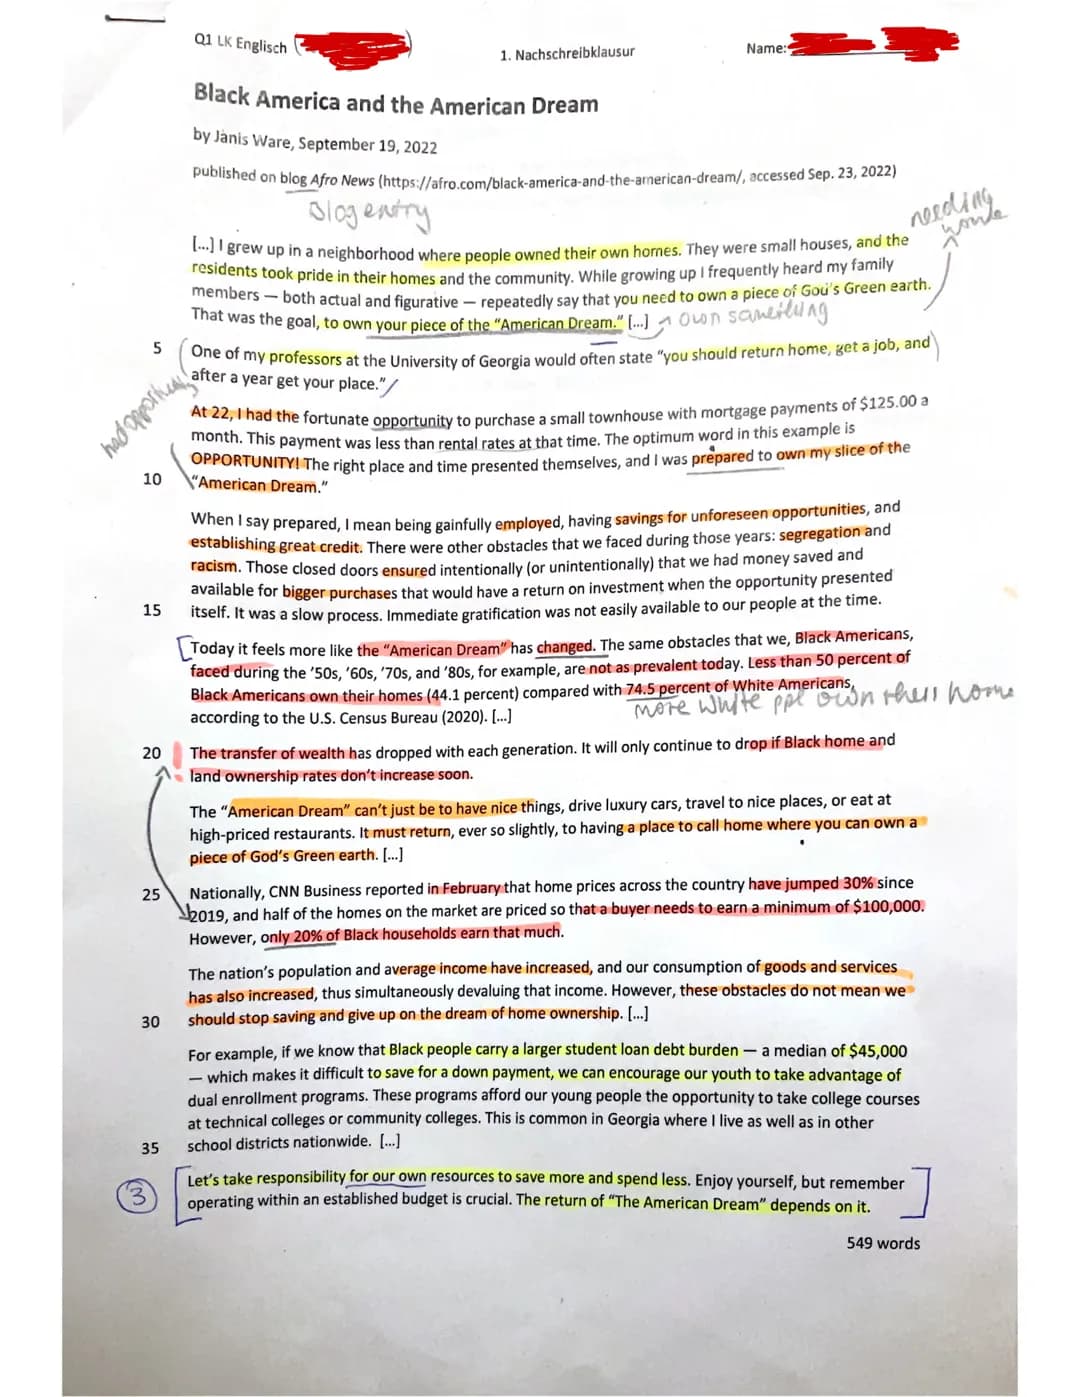 Q1 LK Englisch (
)
1. Nachschreibklausur
Name:
Black America and the American Dream
by Janis Ware, September 19, 2022
published on blog Afro News (https://afro.com/black-america-and-the-american-dream/, accessed Sep. 23, 2022)
Blog entry
needing
[...] I grew up in a neighborhood where people owned their own homes. They were small houses, and the
residents took pride in their homes and the community. While growing up I frequently heard my family
members — both actual and figurative — repeatedly say that you need to own a piece of God's Green earth.
That was the goal, to own your piece of the “American Dream.” [...]
own
5 One of my professors at the University of Georgia would often state “you should return home, get a job, and
after a year get your place.”
had
At 22, I had the fortunate opportunity to purchase a small townhouse with mortgage payments of $125.00 a
month. This payment was less than rental rates at that time. The optimum word in this example is
OPPORTUNITY! The right place and time presented themselves, and I was prepared to own my slice of the
10 “American Dream.”
When I say prepared, I mean being gainfully employed, having savings for unforeseen opportunities, and
establishing great credit. There were other obstacles that we faced during those years: segregation and
racism. Those closed doors ensured intentionally (or unintentionally) that we had money saved and
available for bigger purchases that would have a return on investment when the opportunity presented
15 itself. It was a slow process. Immediate gratification was not easily available to our people at the time.
Today it feels more like the “American Dream” has changed. The same obstacles that we, Black Americans,
faced during the '50s, '60s, '70s, and '80s, for example, are not as prevalent today. Less than 50 percent of
Black Americans own their homes (44.1 percent) compared with 74.5 percent of White Americans,
more white ppl own their home
according to the U.S. Census Bureau (2020). [...]
20 ! The transfer of wealth has dropped with each generation. It will only continue to drop if Black home and
land ownership rates don't increase soon.
The “American Dream” can't just be to have nice things, drive luxury cars, travel to nice places, or eat at
high-priced restaurants. It must return, ever so slightly, to having a place to call home where you can own a
piece of God's Green earth. [...]
25 Nationally, CNN Business reported in February that home prices across the country have jumped 30% since
2019, and half of the homes on the market are priced so that a buyer needs to earn a minimum of $100,000.
However, only 20% of Black households earn that much.
The nation's population and average income have increased, and our consumption of goods and services
has also increased, thus simultaneously devaluing that income. However, these obstacles do not mean we
30 should stop saving and give up on the dream of home ownership. [...]
For example, if we know that Black people carry a larger student loan debt burden — a median of $45,000
— which makes it difficult to save for a down payment, we can encourage our youth to take advantage of
dual enrollment programs. These programs afford our young people the opportunity to take college courses
at technical colleges or community colleges. This is common in Georgia where I live as well as in other
35 school districts nationwide. [...]
3
Let's take responsibility for our own resources to save more and spend less. Enjoy yourself, but remember
operating within an established budget is crucial. The return of “The American Dream” depends on it.
549 words